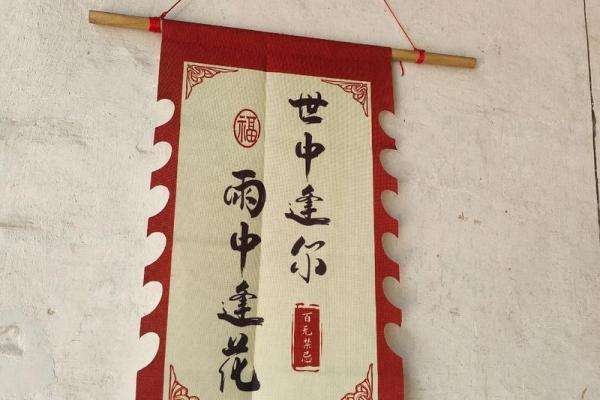 世中逢尔
百无禁忌
福
雨中逢花